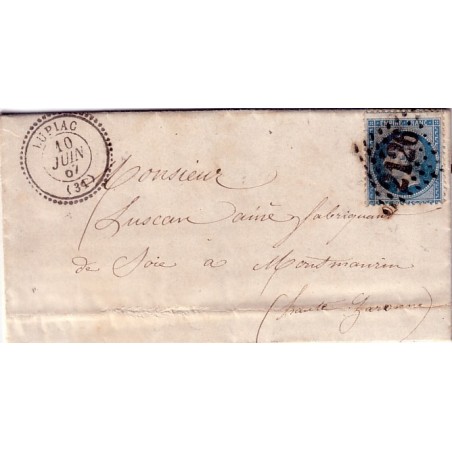 LUPIAC
10
JUIN
67
(31)
EMPIRE FRANC
2126
Monsieur
Luscan ainé fabriquant
de Soie à Montmaurin
(haute Garonne)